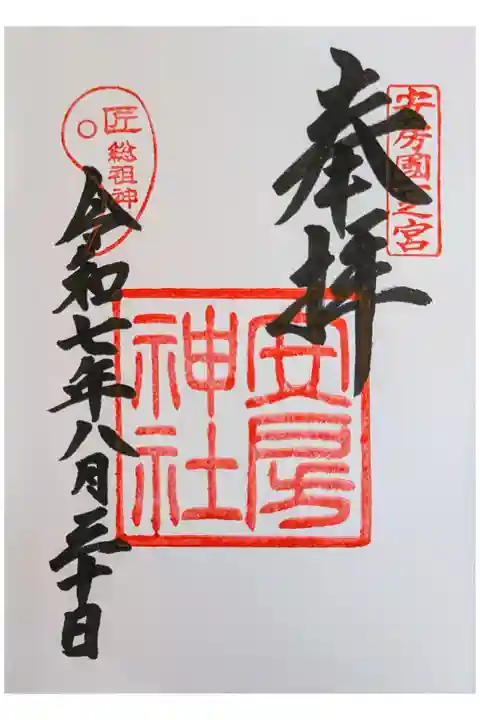 安房國一之宮
奉拝
安房神社
匠総祖神
令和七年八月三十日